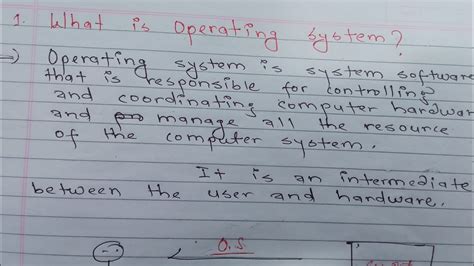 1. What is Operating system?
=> Operating system is system software
that is responsible for controlling
and coordinating computer hardware
and manage all the resource
of the computer system.
It is an intermediate
between the user and hardware.
O.S.